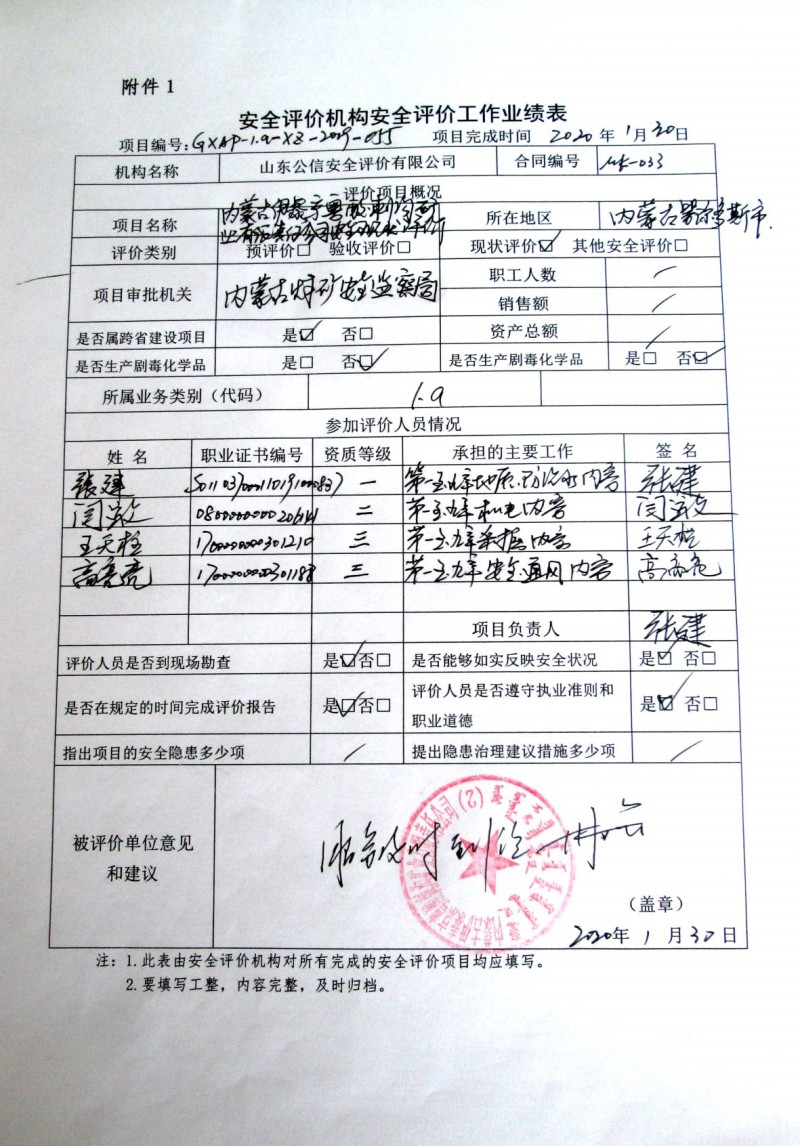 附件 1
安全评价机构安全评价工作业绩表
项目编号:GXAP-1.9-XZ-2019-055 项目完成时间 2020 年 1 月 30 日
机构名称 山东公信安全评价有限公司 合同编号 033
评价项目概况
项目名称 内蒙古 所在地区 内蒙古鄂尔多斯市
业有限责任公司安全现状评价
评价类别 预评价□ 验收评价□ 现状评价☑ 其他安全评价□
项目审批机关 内蒙古煤矿安全监察局 职工人数 /
销售额 /
资产总额 /
是否属跨省建设项目 是☑ 否□
是否生产剧毒化学品 是□ 否☑ 是否生产剧毒化学品 是□ 否☑
所属业务类别（代码） 1.9
参加评价人员情况
姓 名 职业证书编号 资质等级 承担的主要工作 签 名
张建 一 第一至九章地质、防治水内容 张建
闫 二 第一至九章机电内容 闫
王天柱 1700000000301210 三 第一至九章采掘内容 王天柱
高亮亮 1700000000301188 三 第一至九章安全、通风内容 高亮亮
项目负责人 张建
评价人员是否到现场勘查 是☑否□ 是否能够如实反映安全状况 是☑ 否□
是否在规定的时间完成评价报告 是☑否□ 评价人员是否遵守执业准则和
职业道德 是☑ 否□
指出项目的安全隐患多少项 / 提出隐患治理建议措施多少项 /
被评价单位意见
和建议
服务及时 到位
(2)
（盖章）
2020年 1 月 30 日
注：1.此表由安全评价机构对所有完成的安全评价项目均应填写。
2.要填写工整，内容完整，及时归档。